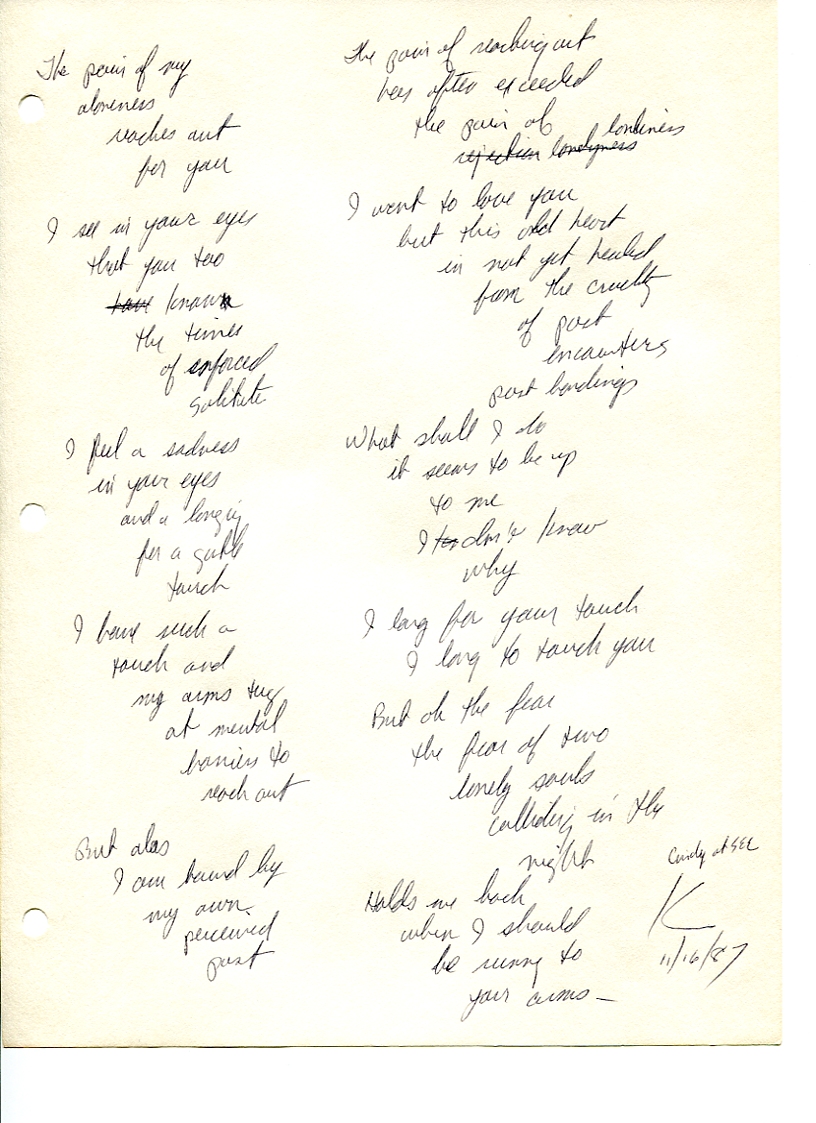 The pain of my
aloneness
reaches out
for you
I see in your eyes
that you too
have known
the times
of enforced
solitute
I feel a sadness
in your eyes
and a longing
for a gentle
touch
I have such a
touch and
my arms tug
at mental
barriers to
reach out
But alas
I am bound by
my own
perceived
past
The pain of reaching out
has often exceeded
the pain of
rejection lonelyness lonliness
I want to love you
but this old heart
is not yet healed
from the cruelty
of past
encounters
past bondings
What shall I do
it seems to be up
to me
I don't know
why
I long for your touch
I long to touch you
But oh the fear
the fear of two
lonely souls
colliding in the
night
Holds me back
when I should
be runing to
your arms -
Cindy at
K
11/16/87